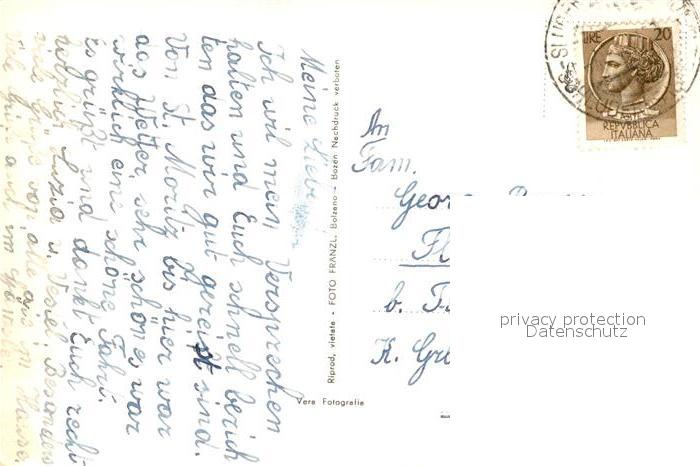 Meine Liebe
Ich will mein Versprechen
halten und Euch schnell berich
ten das wir gut gereist sind.
Von St. Moritz bis hier war
das Wetter sehr schön es war
wirklich eine schöne Fahrt.
Es grüßt und dankt Euch recht
herzlich Luzia u.
viele Grüße von alle aus m Hause.
Riprod. vietata - FOTO FRÄNZL, Bolzano - Bozen Nachdruck verboten
Vera Fotografie
LIRE 20
REPVBBLICA
ITALIANA
An
Fam.
Geor
Fl
b. F
K. Gr
privacy protection
Datenschutz